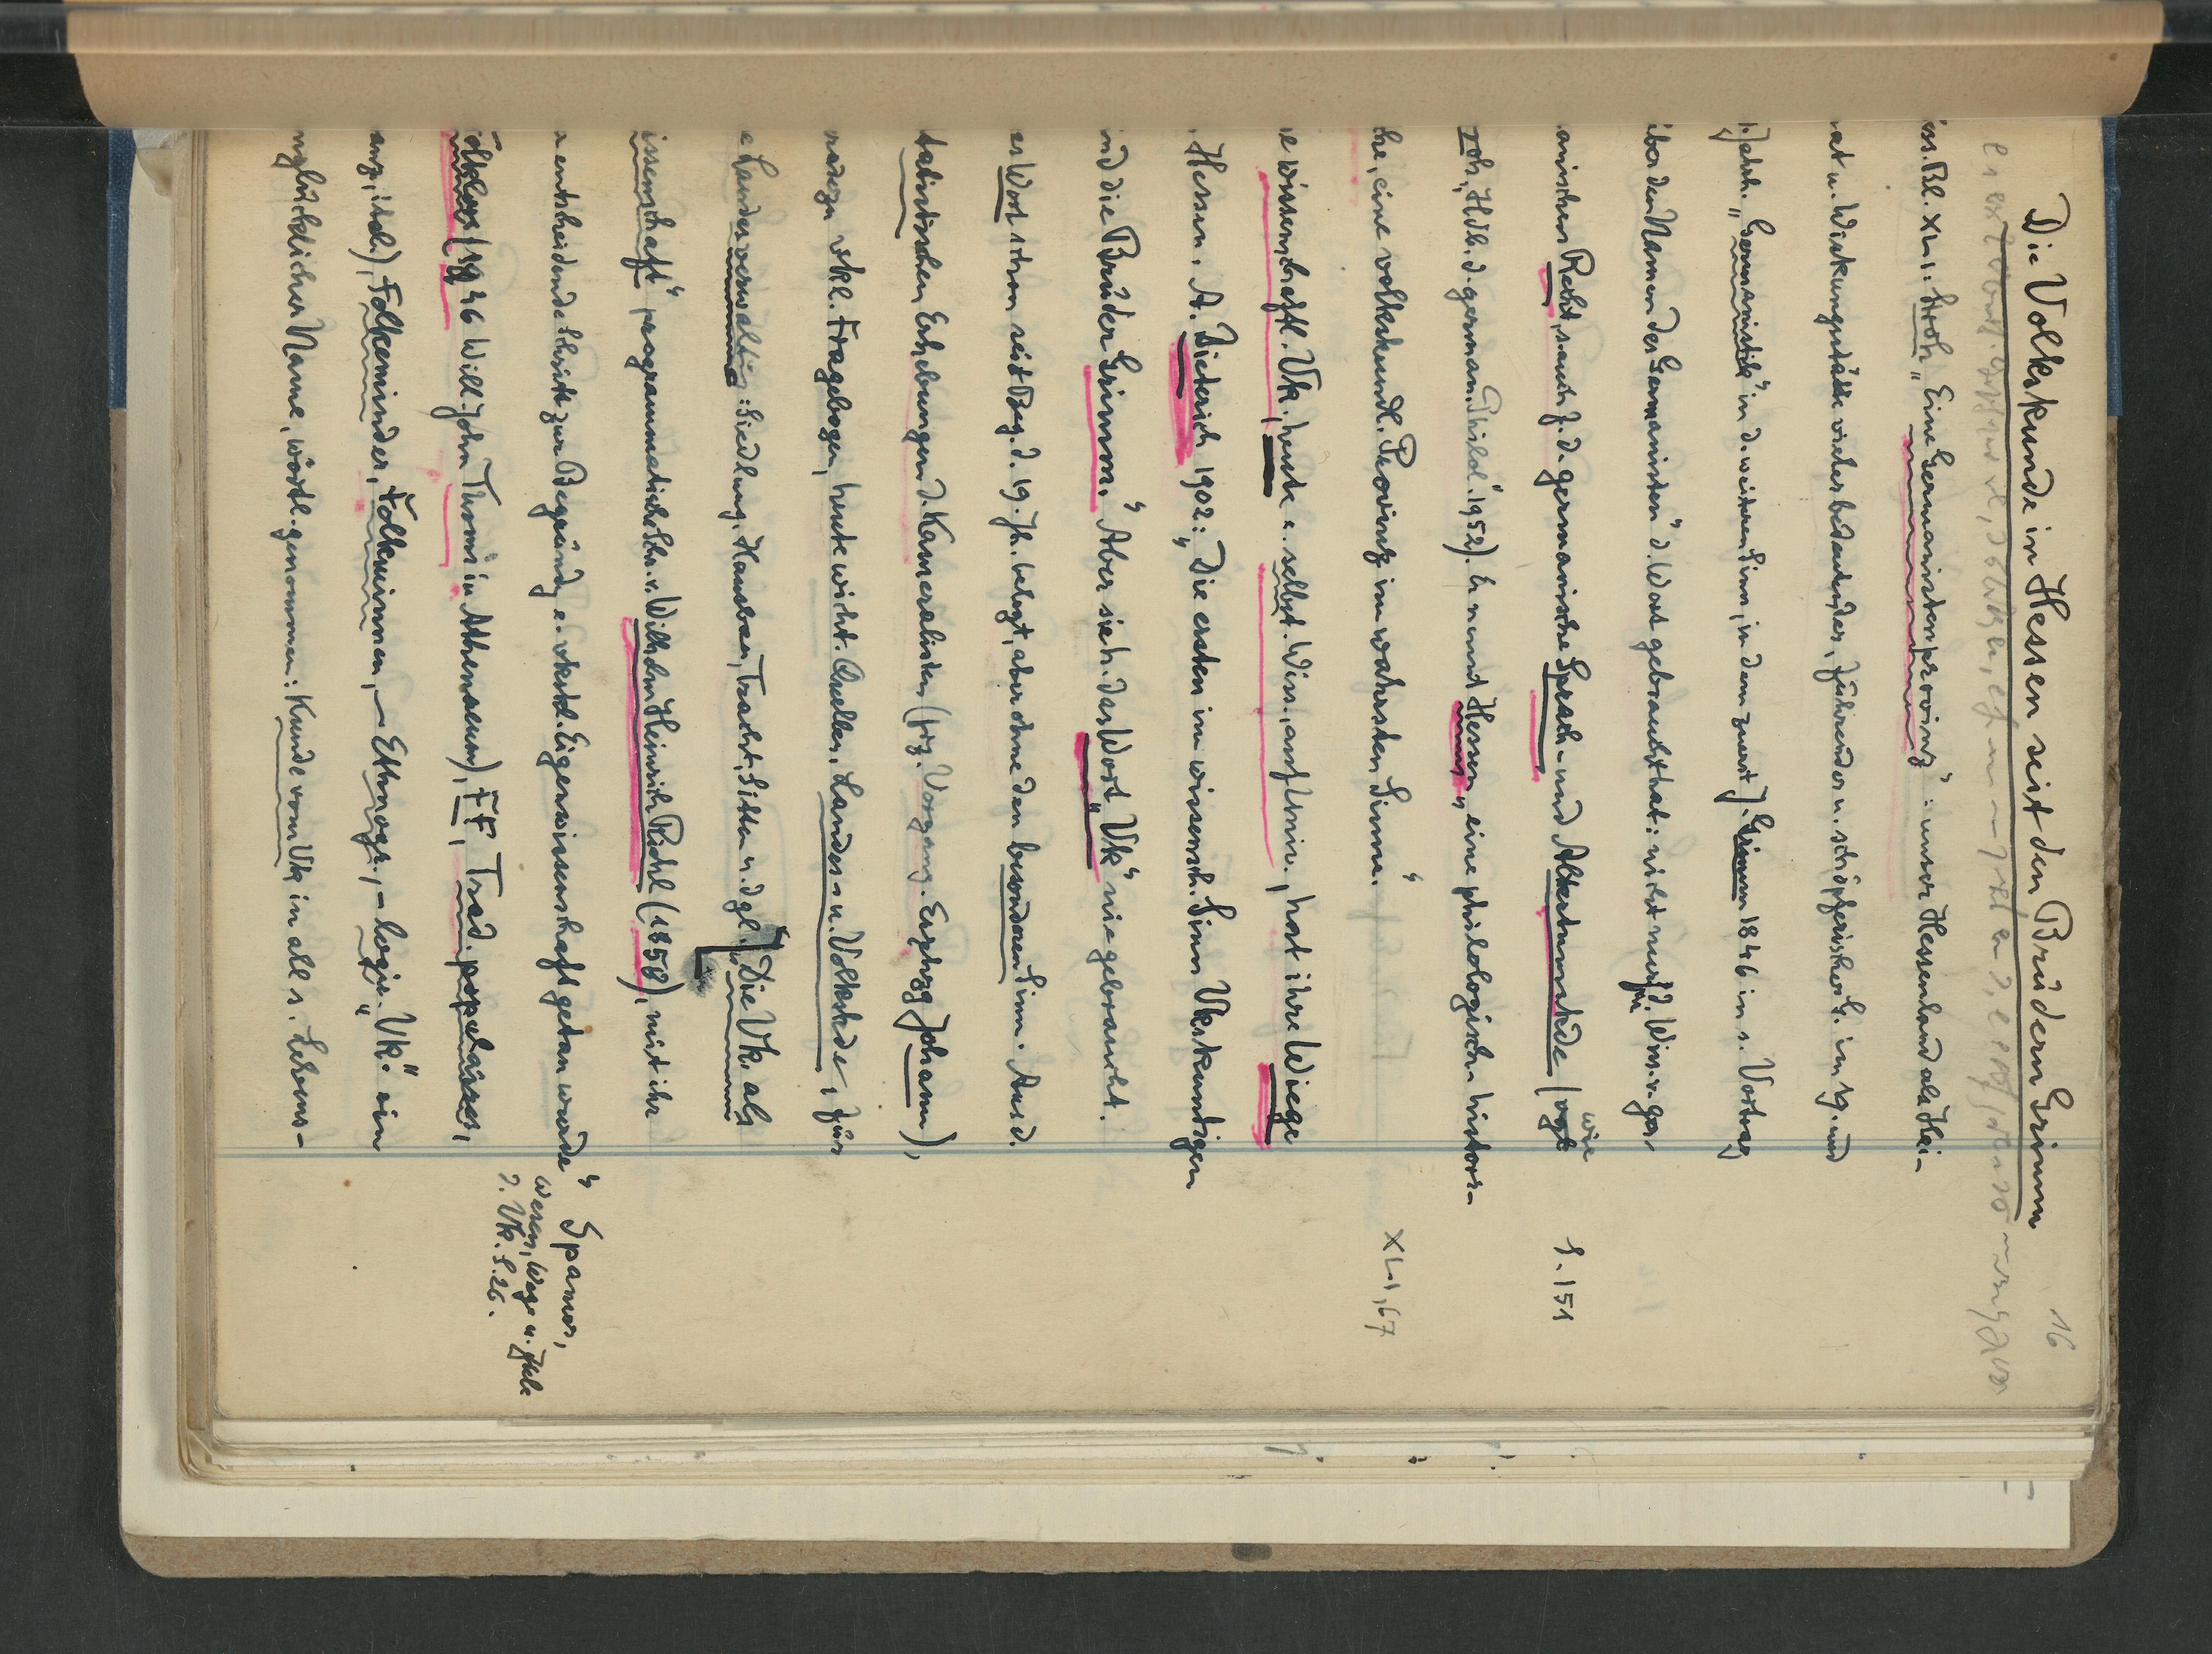 16
Die Volkskunde in Hessen seit den Brüdern Grimm
ess. Bl. XLI: Stroh „Eine Germanistenprovinz“: unser Hessenland als Hei-
mat u. Wirkungsstätte vieler bedeutender, führender u. schöpferischer G. im 19. und
. Jahrh. „Germanistik“ in d. weiteren Sinn, in dem zuerst J. Grimm 1846 in s. Vortrag
über den Namen der Germanisten“ d. Wort gebraucht hat: nicht nur für d. Wiss. v. ger-
manischen Recht, s. auch f. d. germanische Sprach- und Altertumskde (vgl. wie S. 151
roh, Hdb. d. german. Philol.“ 1952). Er nennt Hessen „eine philologisch-histori-
che, eine volkskundl. Provinz im wahrsten Sinne.“ XLI, 67
ie wissenschaftl. Vk., heute e. selbst. Wiss., hat ihre Wiege
Hessen. A. Dieterich 1902: „Die ersten im wissensch. Sinn Vkskundigen
ind die Brüder Grimm.“ Aber sie h. das Wort „Vk“ nie gebraucht.
as Wort schon seit Beg. d. 19. Jh. belegt, aber ohne den besonderen Sinn. Aus d.
statistischen Erhebungen d. Kameralisten (bes. Vorgang. Erzhzg Johann),
vkl. Fragebogen, heute wicht. Quellen. Landes- u. Volkskde, für
e Landesverwaltg: Siedlung, Hausbau, Tracht, Sitten u. dgl. „Die Vk. als
issenschaft“, programmatische Schr. v. Wilhelm Heinrich Riehl (1858), mit ihr
r entscheidende Schritt zur Begründg e. vkskdl. Eigenwissenschaft getan wurde“ Spamer,
Wesen, Wege u. Ziele
d. Vk. S. 26.
olklore (1846 Will. John Thoms in Athenaeum), FF, Trad. populaires,
anz., ital.), Folkeminder, Folkminnen, – Ethnogr., -logie. „Vk.“ ein
nglücklicher Name, wörtl. genommen: Kunde vom Vk in all s. Lebens-